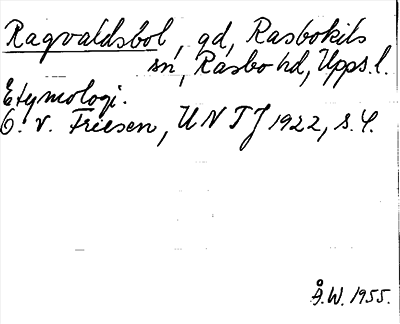 Ragvaldsbol, gd, Rasbokils
sn, Rasbo hd, Upps.l.
Etymologi.
O. v. Friesen, UNTJ 1922, s. 4.
Å.W. 1955.